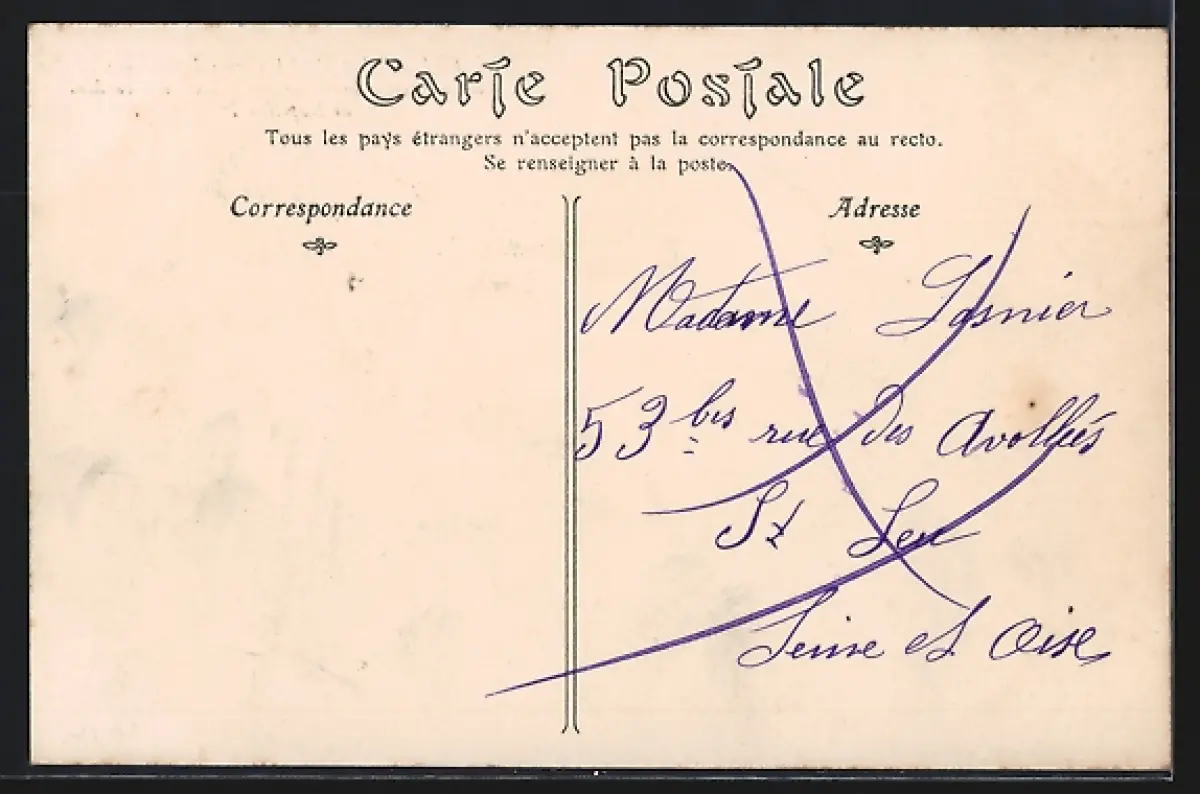 Carte Postale
Tous les pays étrangers n'acceptent pas la correspondance au recto.
Se renseigner à la poste.
Correspondance
Adresse
Madame Lasnier
53 bis rue des
St Leu
Seine et Oise